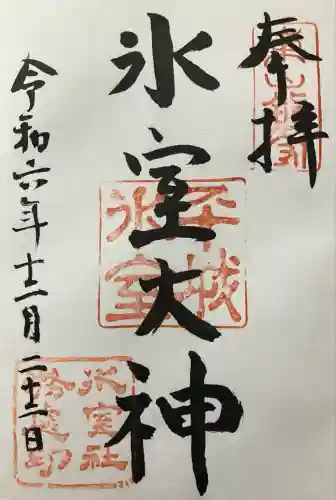 奉拝
氷室大神
平城氷室
氷室社
令和六年十二月二十二日